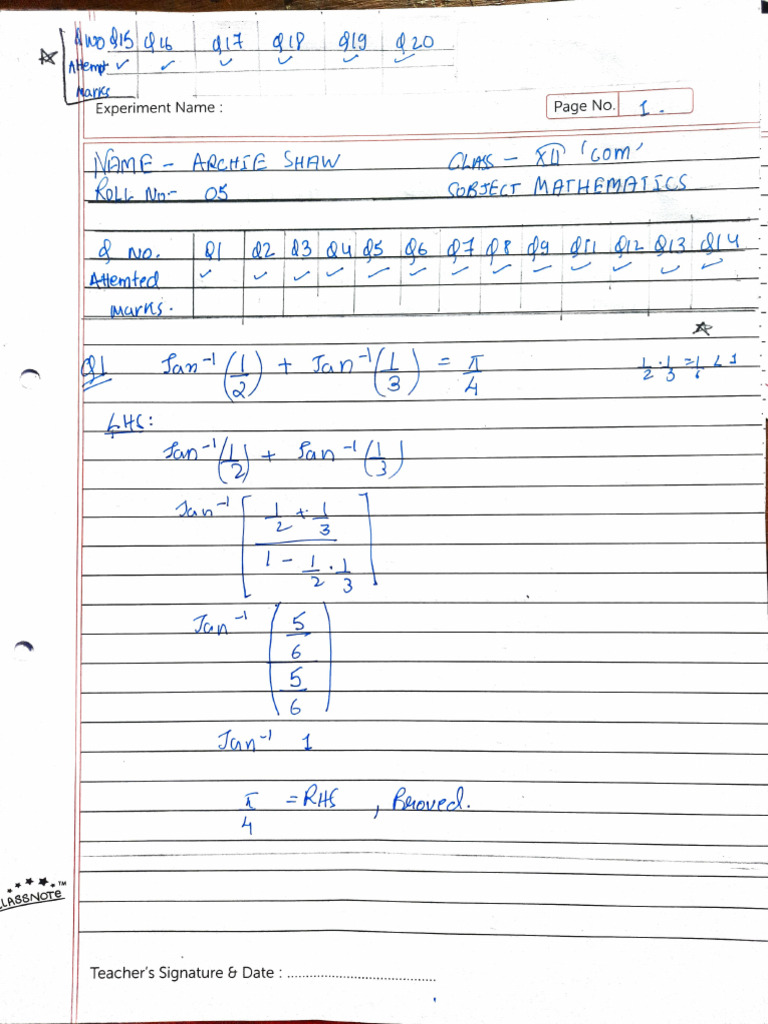 Q NO Q15 Q16 Q17 Q18 Q19 Q20
Attempt ✓ ✓ ✓ ✓ ✓ ✓
Marks
Experiment Name :
Page No. 1.
NAME - ARCHIE SHAW CLASS - XII 'COM'
ROLL No:- 05 SUBJECT MATHEMATICS
Q No. Q1 Q2 Q3 Q4 Q5 Q6 Q7 Q8 Q9 Q11 Q12 Q13 Q14
Attemted ✓ ✓ ✓ ✓ ✓ ✓ ✓ ✓ ✓ ✓ ✓ ✓ ✓
marks.
Q1 Tan⁻¹(1/2) + Tan⁻¹(1/3) = π/4 1/2 · 1/3 = 1/6 < 1
LHS:
Tan⁻¹(1/2) + Tan⁻¹(1/3)
Tan⁻¹[(1/2 + 1/3)/(1 - 1/2 · 1/3)]
Tan⁻¹((5/6)/(5/6))
Tan⁻¹ 1
π/4 = RHS , Proved.
CLASSNOTE™
Teacher's Signature & Date : ........................................